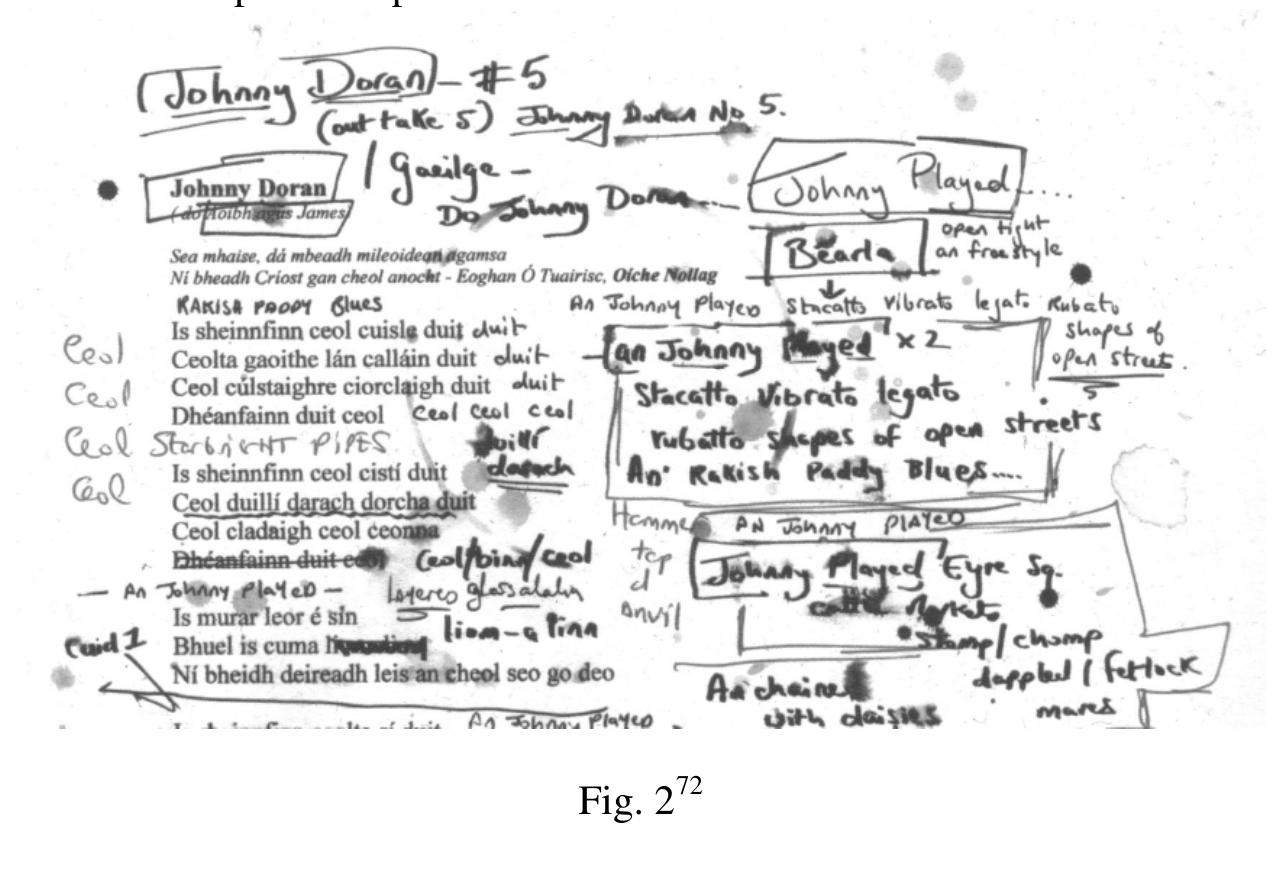 Johnny Doran - #5
(out take 5) Johnny Doran No 5.
/ Gaeilge -
Do Johnny Doran...
Johnny Played.....
Johnny Doran
( do Aoibh agus James)
Béarla
open tight
an freestyle
Sea mhaise, dá mbeadh mileoidean agamsa
Ní bheadh Críost gan cheol anocht - Eoghan Ó Tuairisc, Oíche Nollag
RAKISH PADDY Blues
Is sheinnfinn ceol cuisle duit duit
Ceol
Ceolta gaoithe lán calláin duit duit
Ceol
Ceol cúlstaighre ciorclaigh duit duit
Dhéanfainn duit ceol ceol ceol ceol
Ceol StarbrigHT PIPES
duillí
darach
Ceol
Is sheinnfinn ceol cistí duit
Ceol duillí darach dorcha duit
Ceol cladaigh ceol ceonna
Dhéanfainn duit ceol Ceol/binn/ceol
— An Johnny PlayeD — layered
Is murar leor é sin
liom-a linn
Cuid 1
Bhuel is cuma
Ní bheidh deireadh leis an cheol seo go deo
An Johnny Played
An Johnny Played Stacatto Vibrato legato Rubato
shapes of
open streets
an Johnny Played x 2
Stacatto Vibrato legato
rubatto shapes of open streets
An' Rakish Paddy Blues....
Hammer
AN Johnny PlAyeD
Anvil
Johnny Played Eyre Sq.
Market
Stamp/ chomp
dappled / fetlock
mares
An chained
with daisies
Fig. 2⁷²